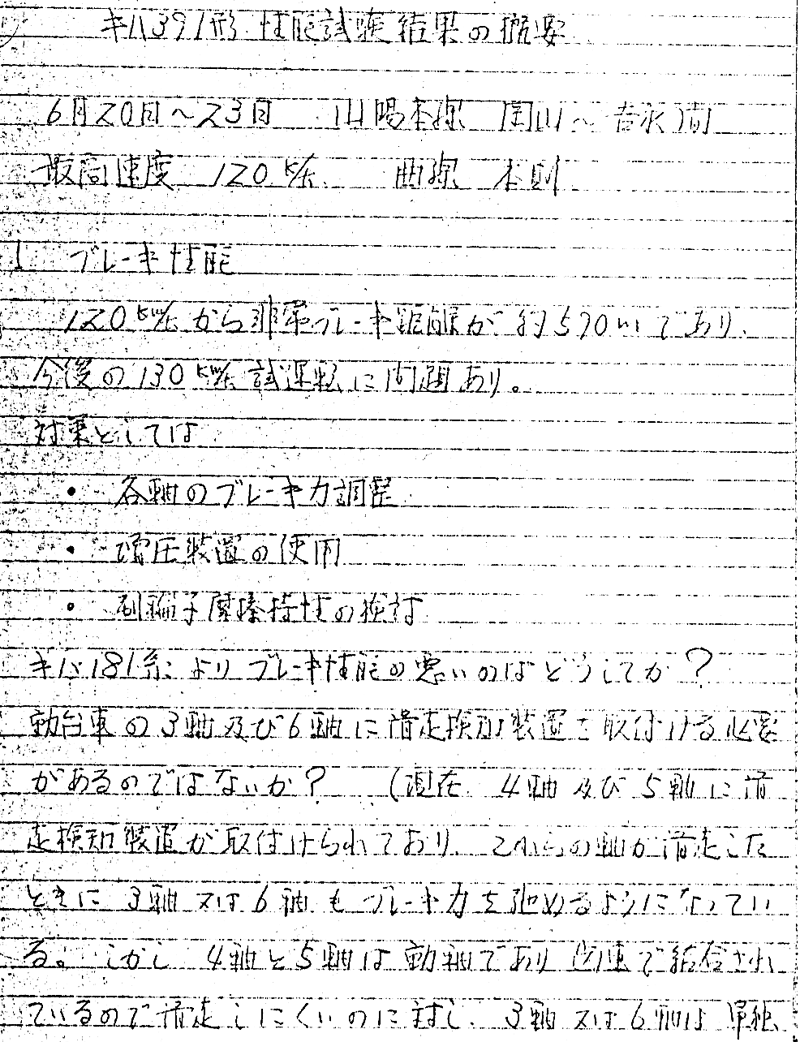 キハ391形 性能試験結果の概要
6月20日～23日 山陽本線 岡山～吉永間
最高速度 120km/h 曲線 本則
1 ブレーキ性能
120km/hから非常ブレーキ距離が約570mであり、
今後の130km/h試運転に問題あり。
対策としては
・ 各軸のブレーキ力調整
・ 増圧装置の使用
・ 制輪子摩擦特性の検討
キハ181系よりブレーキ性能の悪いのはどうしてか？
動台車の3軸及び6軸に滑走検知装置を取付ける必要
があるのではないか？ (現在 4軸及び5軸に滑
走検知装置が取付けられており、これらの軸が滑走した
ときに 3軸又は6軸もブレーキ力を弛めるようになってい
る。しかし 4軸と5軸は動軸であり 歯車で結合され
ているので滑走しにくいのに対し、3軸又は6軸は単独